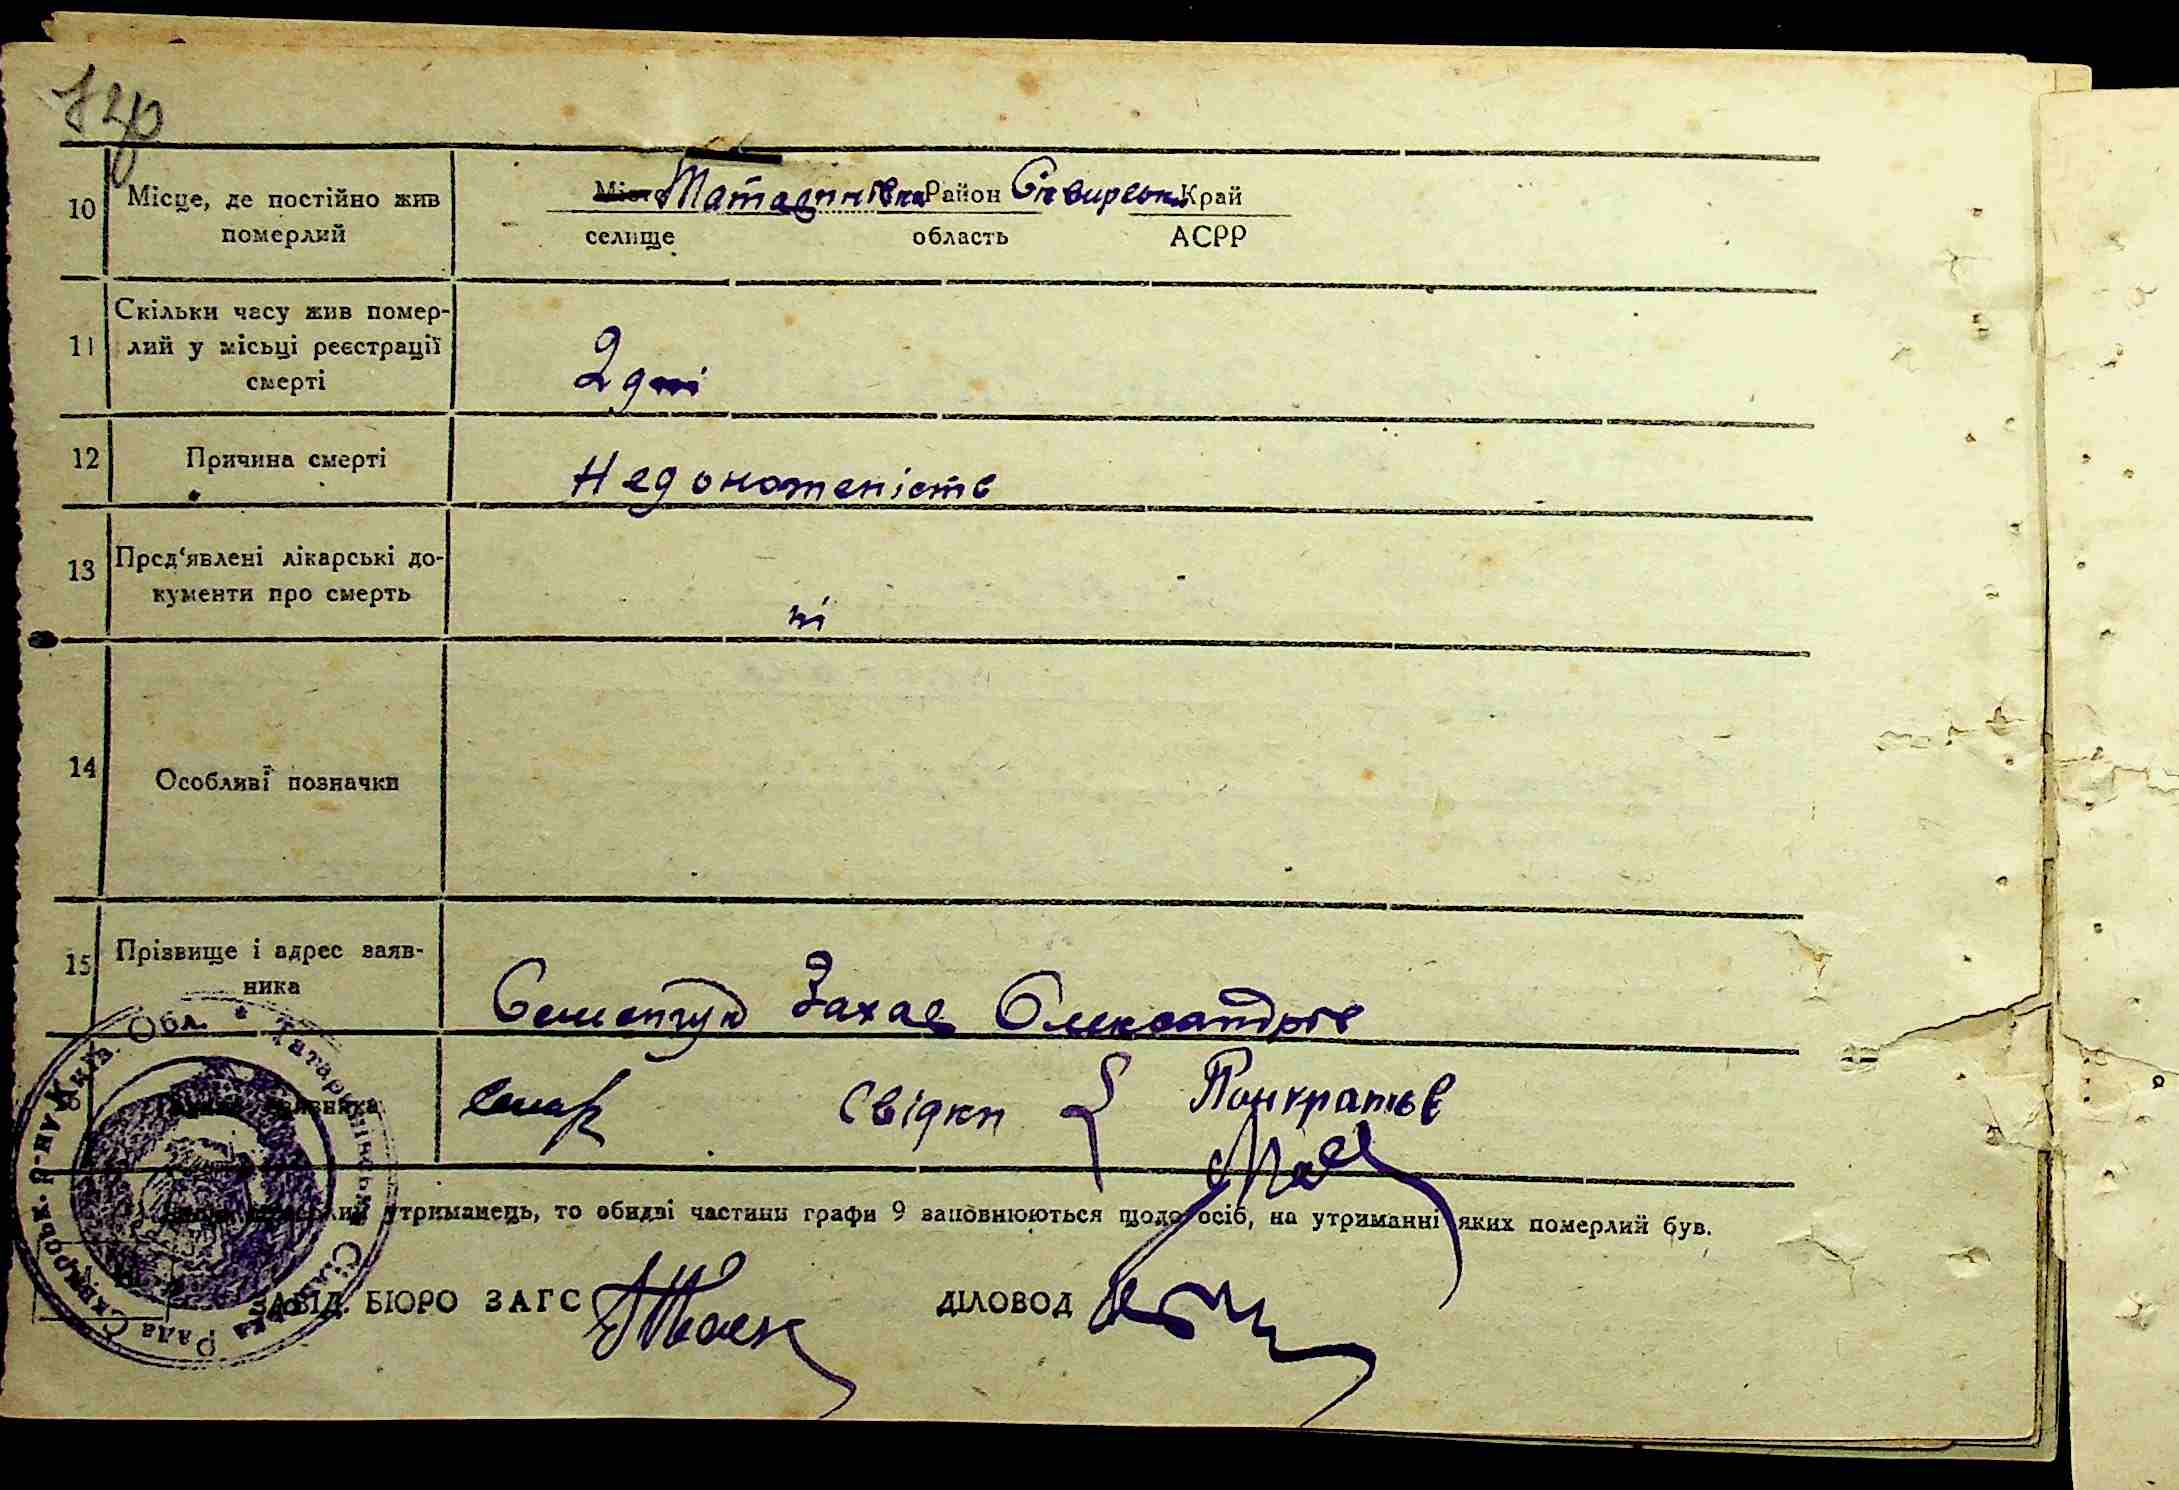 10 Місце, де постійно жив
померлий
Місто Татаринівка Район Сквирськ Край
селище область АСРР
11 Скільки часу жив помер-
лий у місьці реєстрації
смерті
2 дні
12 Причина смерті
Недоношеність
13 Пред'явлені лікарські до-
кументи про смерть
ні
14 Особливі позначки
15 Прізвище і адрес заяв-
ника
Захар Олександрів
Свідки
утриманець, то обидві частини графи 9 заповнюються щодо осіб, на утриманні яких померлий був.
ЗАВІД. БЮРО ЗАГС
ДІЛОВОД
Татаринівська Сільська Рада Сквирськ. Р-ну Київ. Обл.